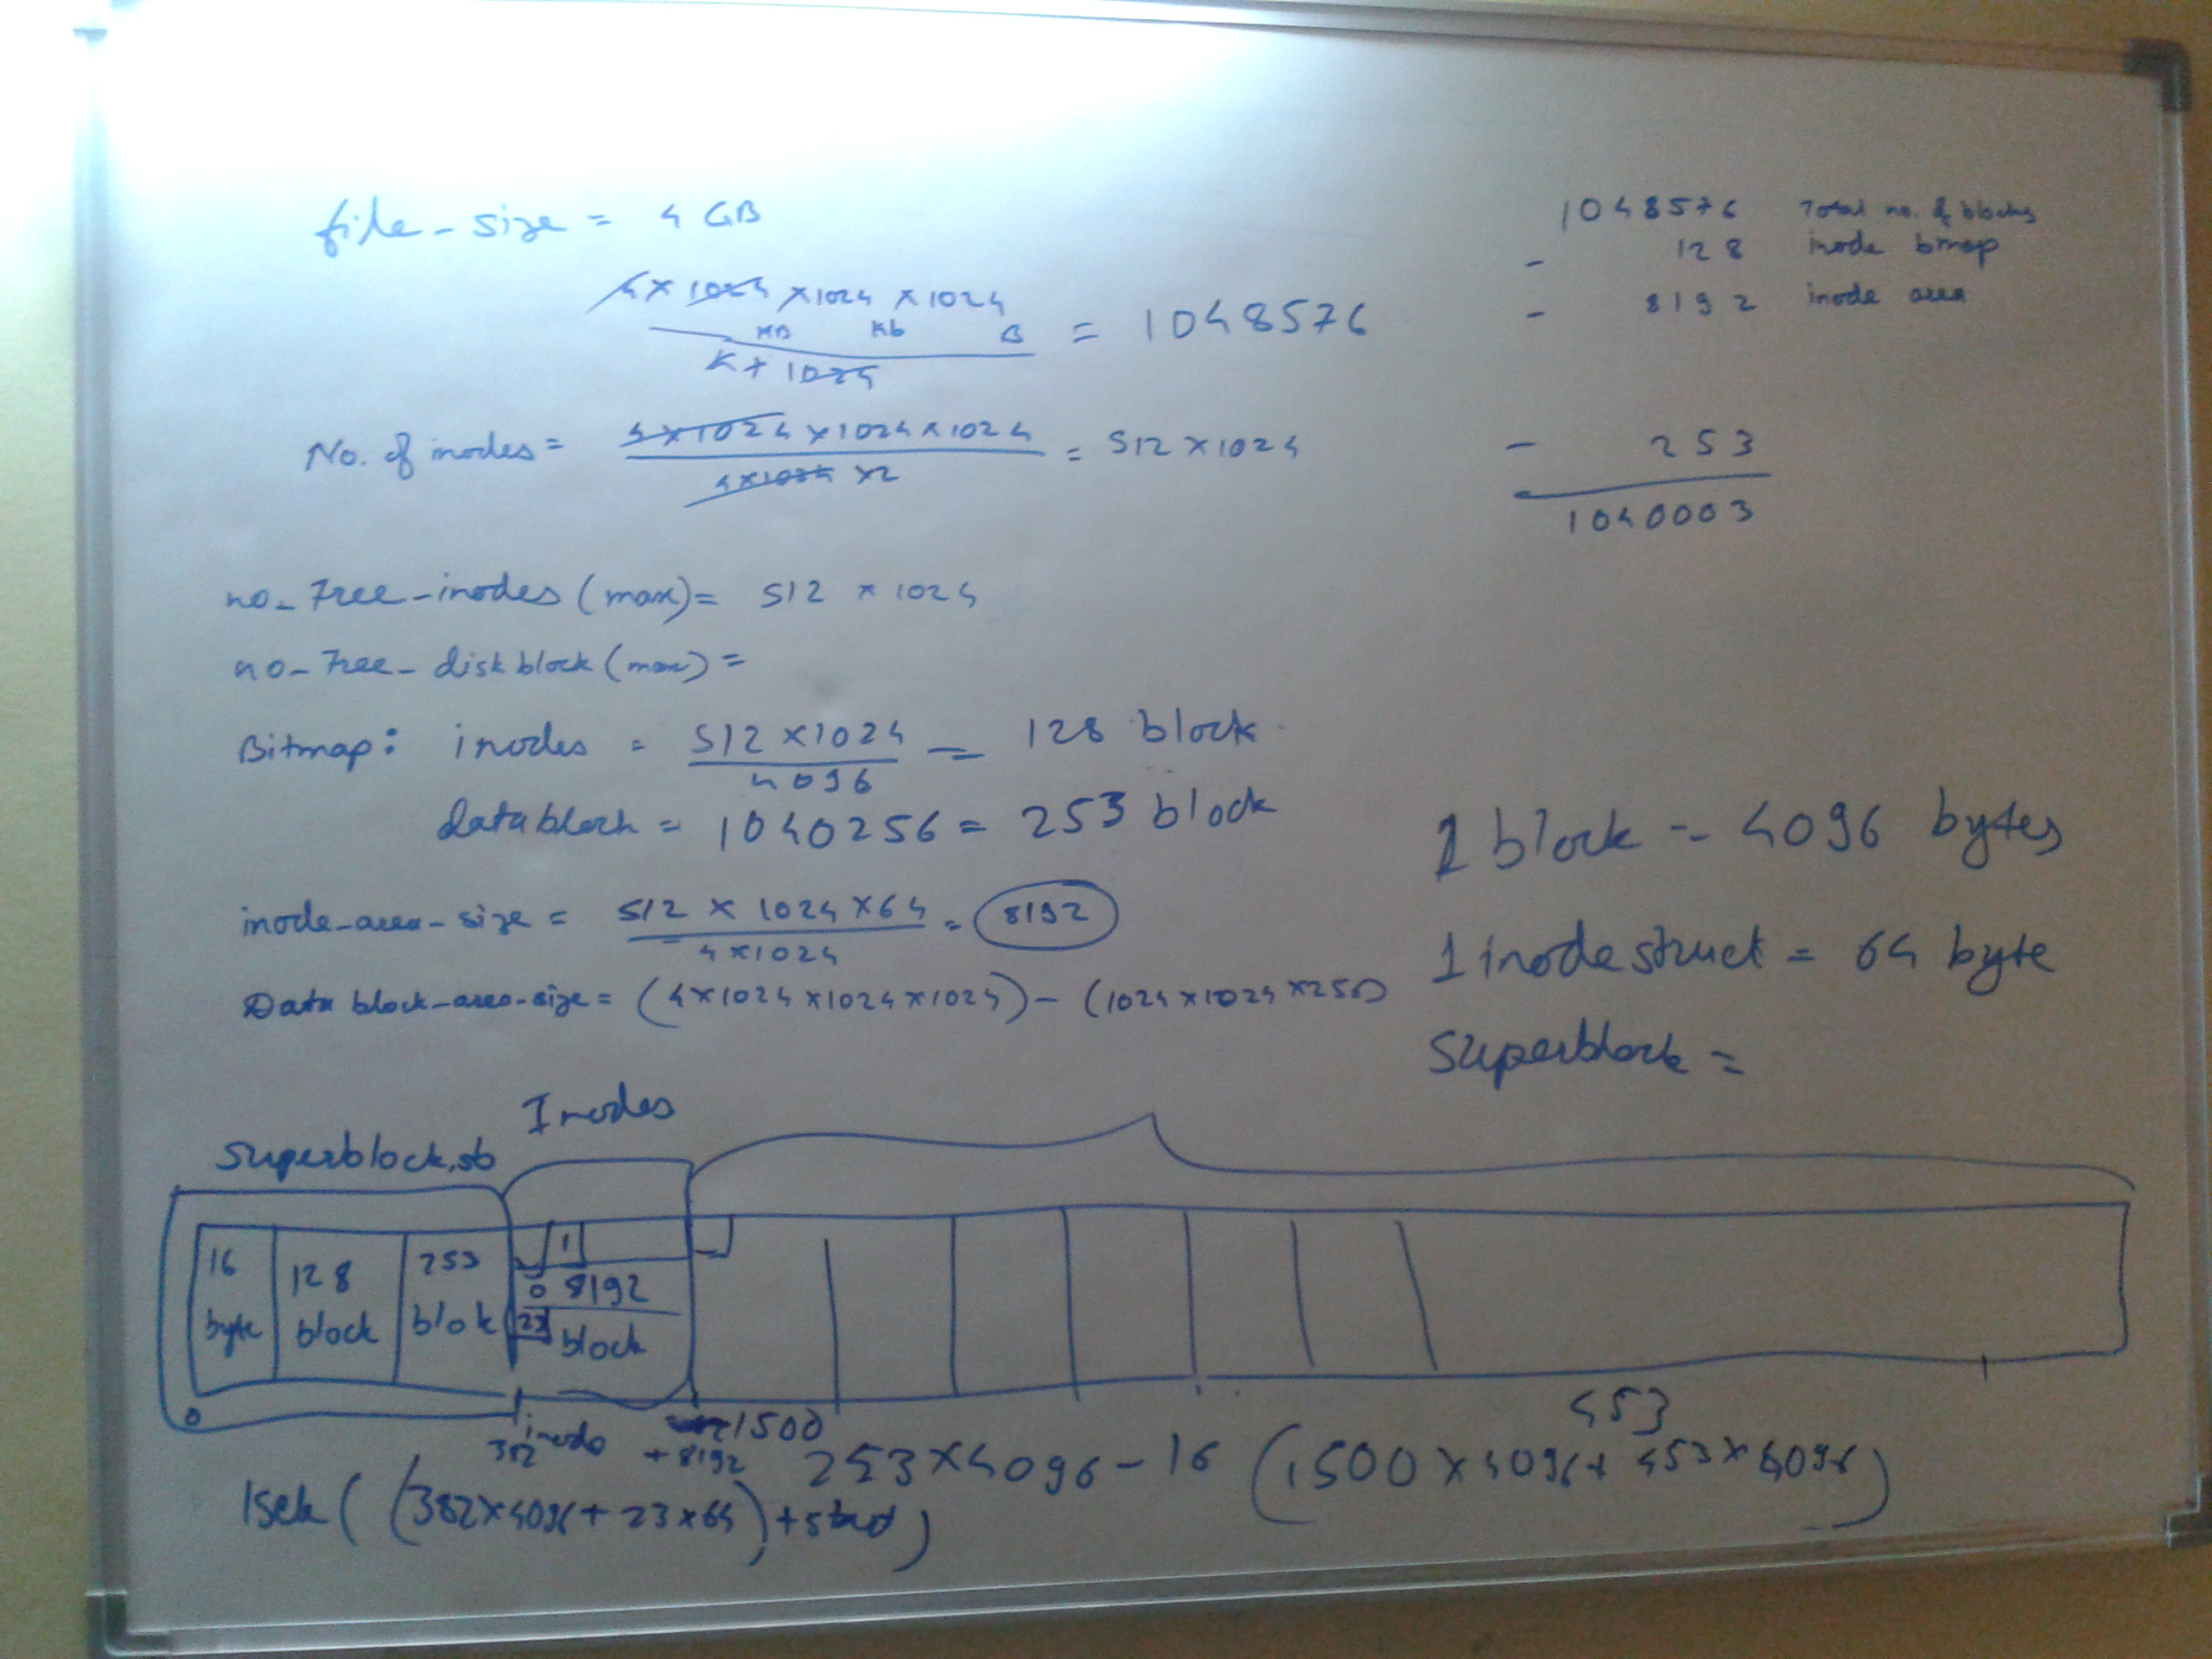 file_size = 4 GB
4 x 1024 x 1024 x 1024
MB Kb B
= 1048576
K x 1024
No. of inodes = 4x1024 x1024 x 1024 = 512 x 1024
4x1024 x2
no_free_inodes (max) = 512 x 1024
no_free_disk block (max) =
Bitmap: inodes = 512 x1024 = 128 block
4096
datablock = 1040256 = 253 block
inode_area_size = 512 x 1024 x 64 = 8192
4 x1024
Data block_area_size = (4x1024 x1024 x1024) - (1024 x1024 x
1048576 Total no. of blocks
- 128 inode bmap
- 8192 inode area
- 253
1040003
1 block = 4096 bytes
1 inode struct = 64 byte
Superblock =
Inodes
Superblock,sb
16 byte
128 block
253 blok
1
0 8192
23 block
0
inode
1500
+ 8192
453
253x4096 - 16 (1500 x 4096 + 453 x 4096)
lsek ( (382x4096 + 23x64) + start )